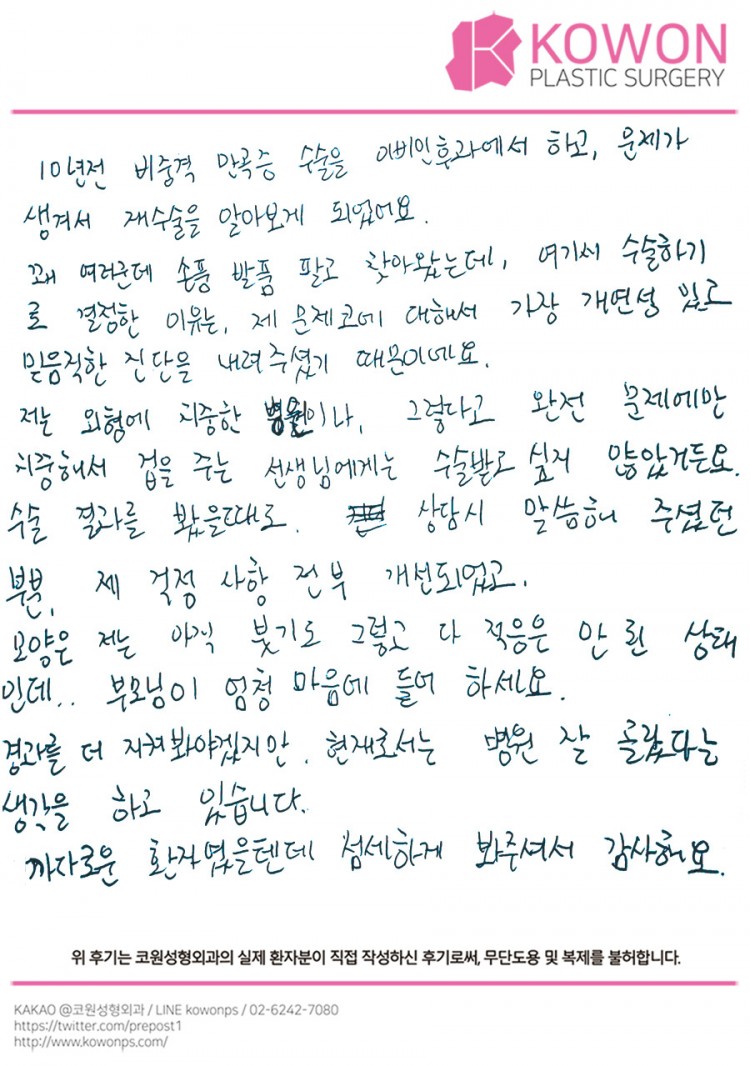 KOWON
PLASTIC SURGERY
10년전 비중격 만곡증 수술을 이비인후과에서 하고, 문제가
생겨서 재수술을 알아보게 되었어요.
꽤 여러군데 손품 발품 팔고 찾아왔는데, 여기서 수술하기
로 결정한 이유는, 제 문제코에 대해서 가장 개연성 있고
믿음직한 진단을 내려주셨기 때문이에요.
저는 외형에 치중한 병원이나, 그렇다고 완전 문제에만
치중해서 겁을 주는 선생님에게는 수술받고 싶지 않았거든요.
수술 결과를 봤을때도. 상담시 말씀해 주셨던
부분, 제 걱정 사항 전부 개선되었고,
모양은 저는 아직 붓기도 그렇고 다 적응은 안 된 상태
인데.. 부모님이 엄청 마음에 들어 하세요.
경과를 더 지켜봐야겠지만, 현재로서는 병원 잘 골랐다는
생각을 하고 있습니다.
까다로운 환자였을텐데 섬세하게 봐주셔서 감사해요.
위 후기는 코원성형외과의 실제 환자분이 직접 작성하신 후기로써, 무단도용 및 복제를 불허합니다.
KAKAO @코원성형외과 / LINE kowonps / 02-6242-7080
https://twitter.com/prepost1
http://www.kowonps.com/